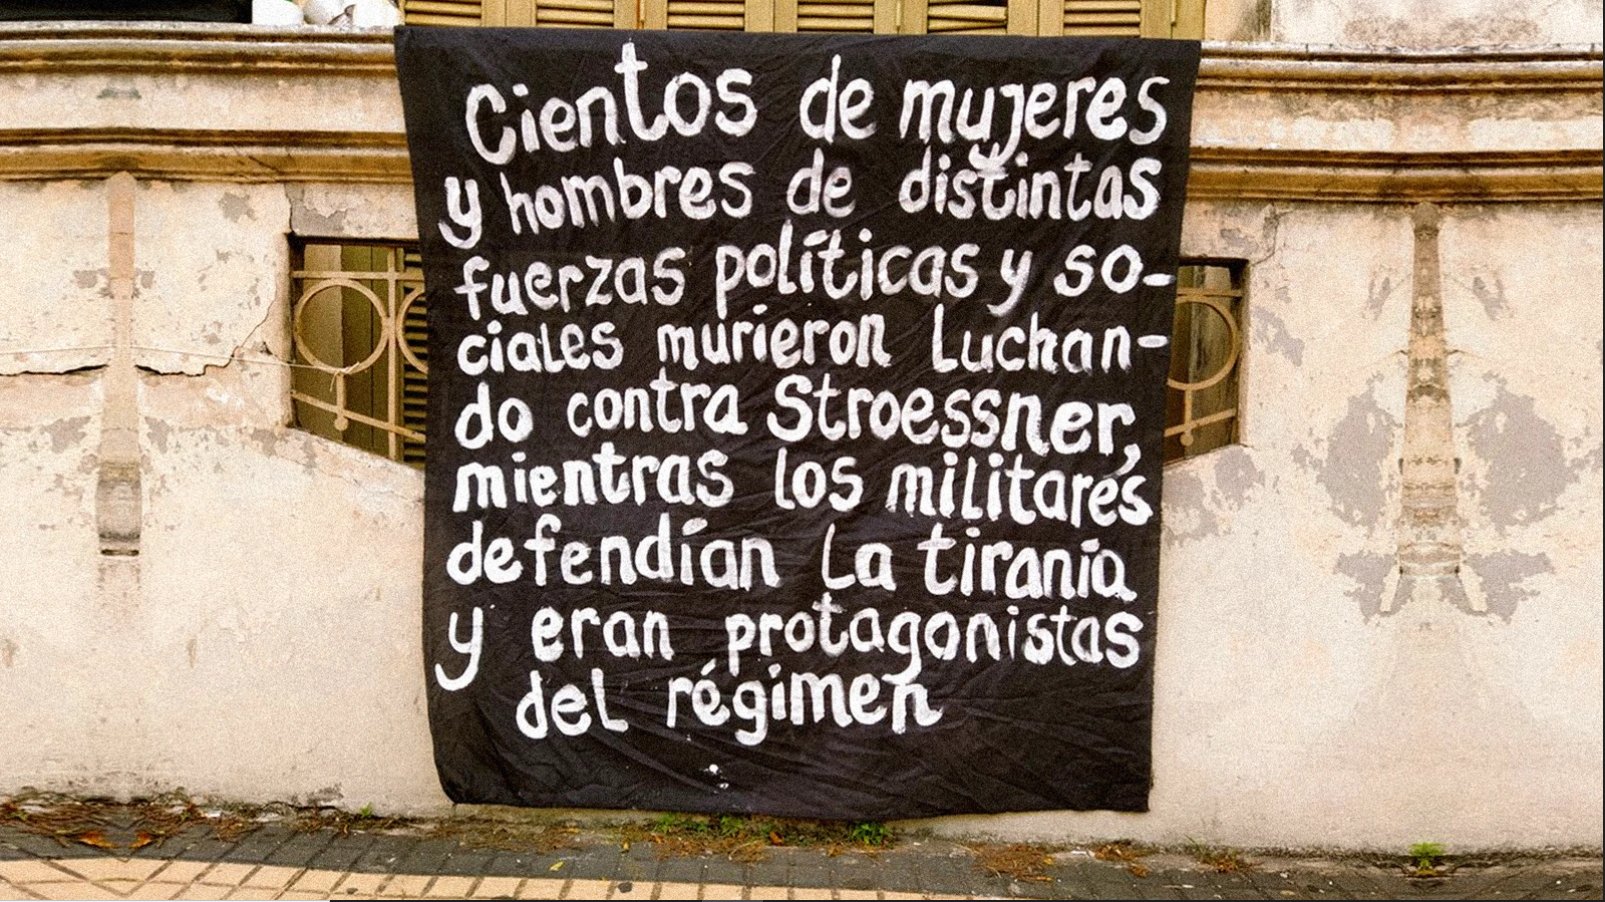 Cientos de mujeres
y hombres de distintas
fuerzas políticas y so-
ciales murieron luchan-
do contra Stroessner,
mientras los militares
defendían la tiranía
y eran protagonistas
del régimen